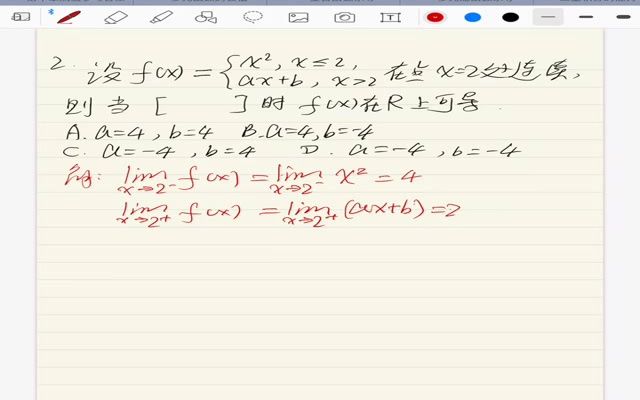 2. 设 f(x) = { x², x ≤ 2, 在点 x=2处连续,
ax+b, x>2
则当 [ ] 时 f(x)在R上可导.
A. a=4, b=4 B. a=4, b=-4
C. a=-4, b=4 D. a=-4, b=-4
解: lim x→2⁻ f(x) = lim x→2⁻ x² = 4
lim x→2⁺ f(x) = lim x→2⁺ (ax+b) = 2